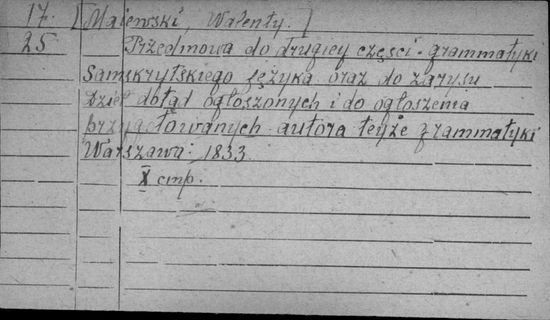 17. [Majewski, Walenty.]
25 Przedmowa do drugiey części grammatyki
Samskrytskiego języka oraz do zarysu
dzieł dotąd ogłoszonych i do ogłoszenia
przygotowanych autora teyże grammatyki
Warszawa: 1833
X стр.